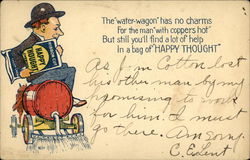 The "water-wagon" has no charms
For the man "with coppers hot"
But still you'll find a lot of help
In a bag of "HAPPY THOUGHT"
HAPPY THOUGHT
As Jim Cotton lost
his other man by my
promising to work
for him. I must
go there. Am Sorry
C. E. Lent